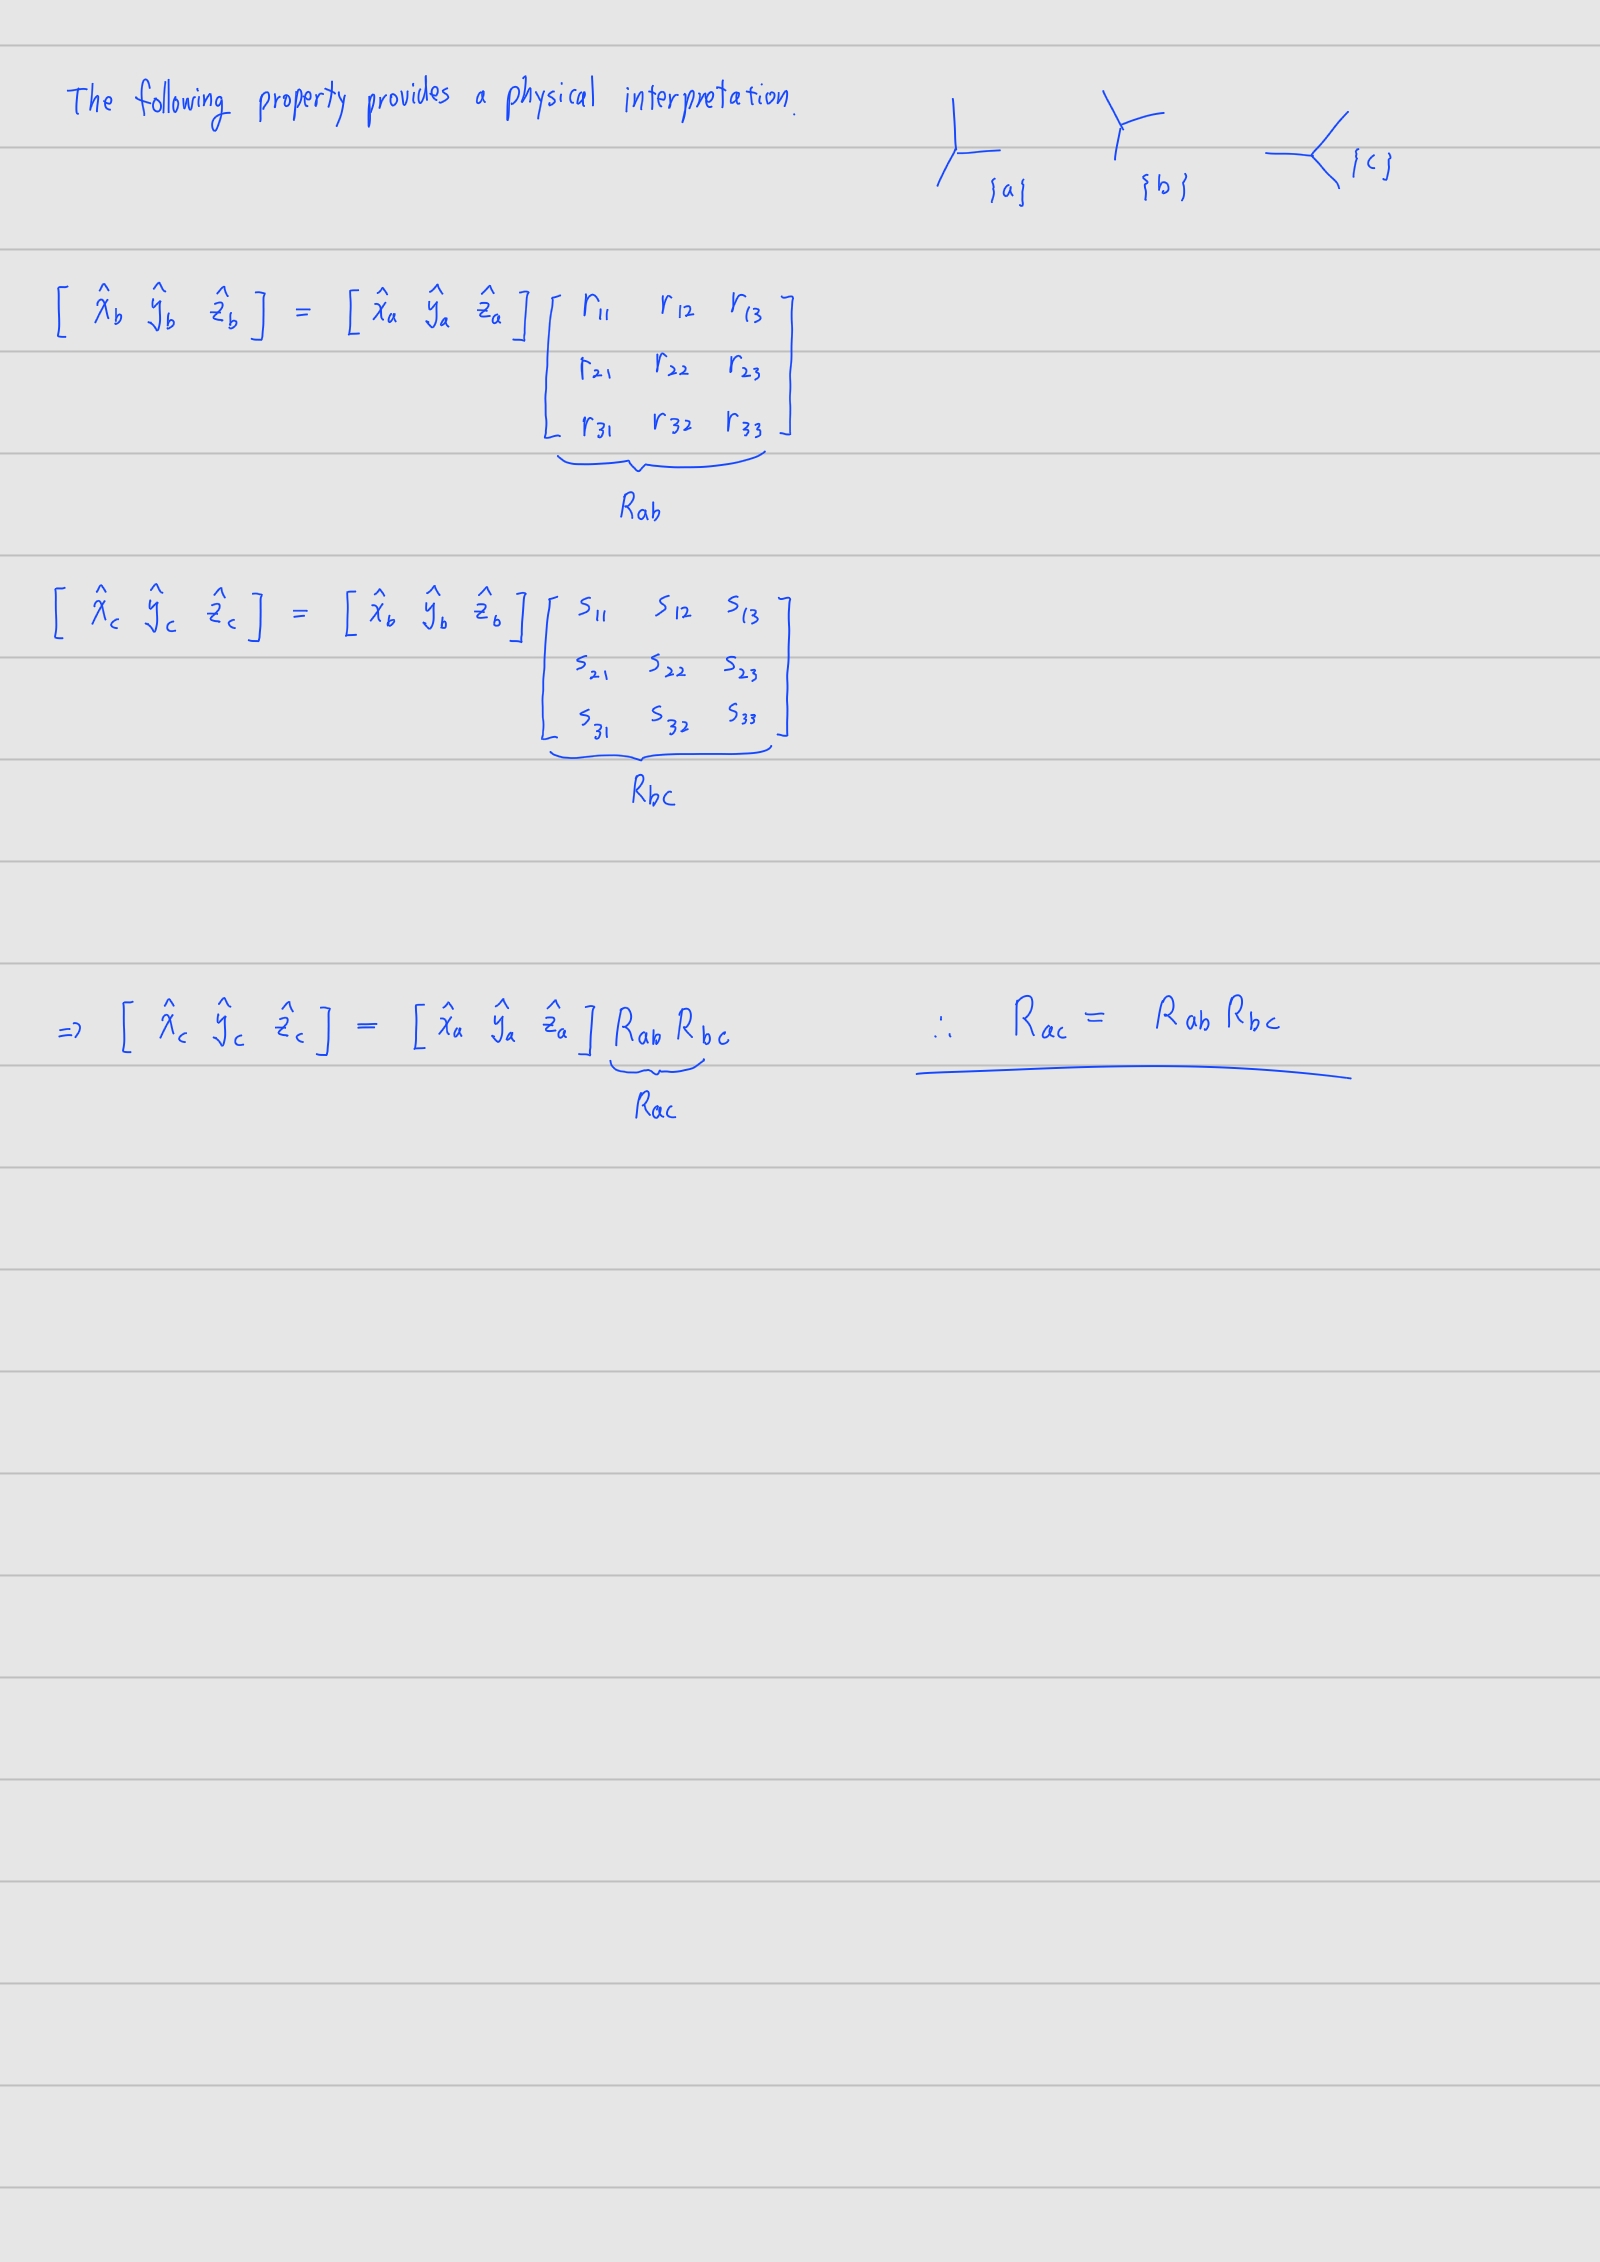 The following property provides a physical interpretation.
{a} {b} {c}
[ x̂_b ŷ_b ẑ_b ] = [ x̂_a ŷ_a ẑ_a ] [ r_11 r_12 r_13
r_21 r_22 r_23
r_31 r_32 r_33 ]
R_ab
[ x̂_c ŷ_c ẑ_c ] = [ x̂_b ŷ_b ẑ_b ] [ s_11 s_12 s_13
s_21 s_22 s_23
s_31 s_32 s_33 ]
R_bc
⇒ [ x̂_c ŷ_c ẑ_c ] = [ x̂_a ŷ_a ẑ_a ] R_ab R_bc ∴ R_ac = R_ab R_bc
R_ac